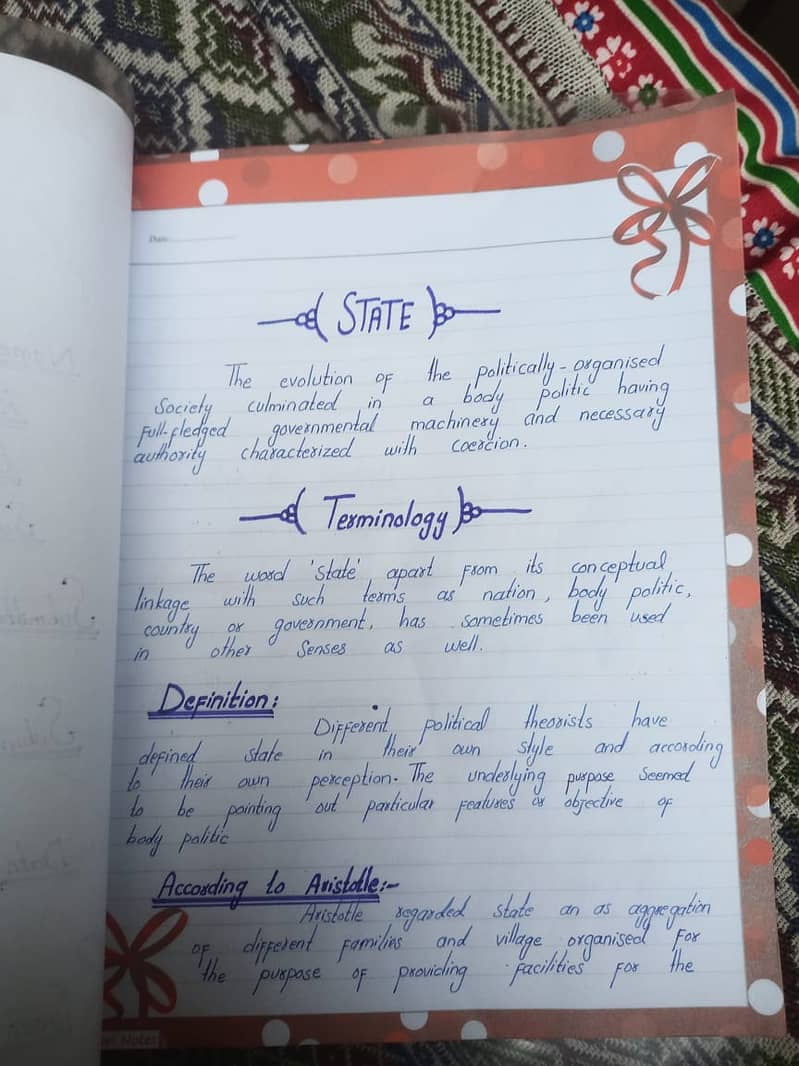 Date
STATE
The evolution of the politically-organised
Society culminated in a body politic having
Full-fledged governmental machinery and necessary
authority characterized with coercion.
Terminology
The word 'State' apart from its conceptual
linkage with such terms as nation, body politic,
country or government, has sometimes been used
in other Senses as well.
Definition:
Different political theorists have
defined state in their own style and according
to their own perception. The underlying purpose Seemed
to be pointing out particular features or objective of
body politic
According to Aristotle:-
Aristotle regarded state an as aggregation
of different families and village organised For
the purpose of providing facilities for the
Notes